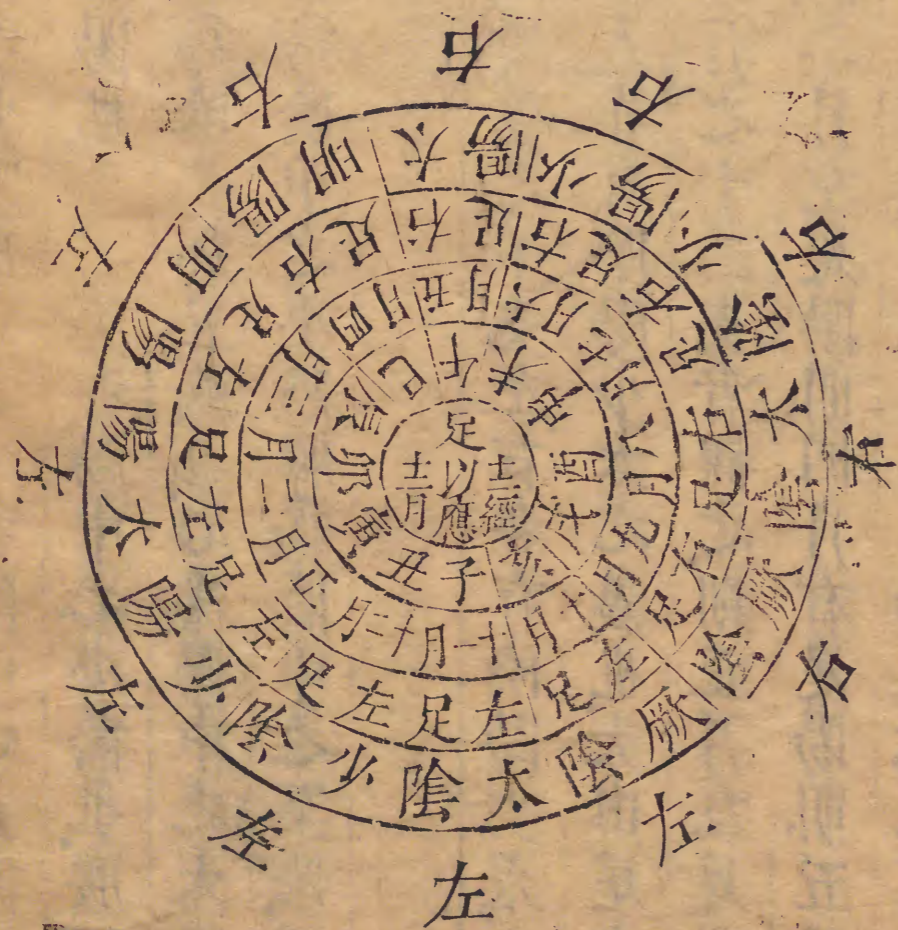 足以應
十二經
十二月
子
丑
寅
卯
辰
巳
午
未
申
酉
戌
亥
十一月
十二月
正月
二月
三月
四月
五月
六月
七月
八月
九月
十月
左足
左足
左足
左足
左足
右足
右足
右足
右足
右足
右足
左足
太陰
少陰
少陽
太陽
陽明
陽明
太陽
少陽
少陰
太陰
厥陰
厥陰
左
左
左
左
左
右
右
右
右
右
右
左